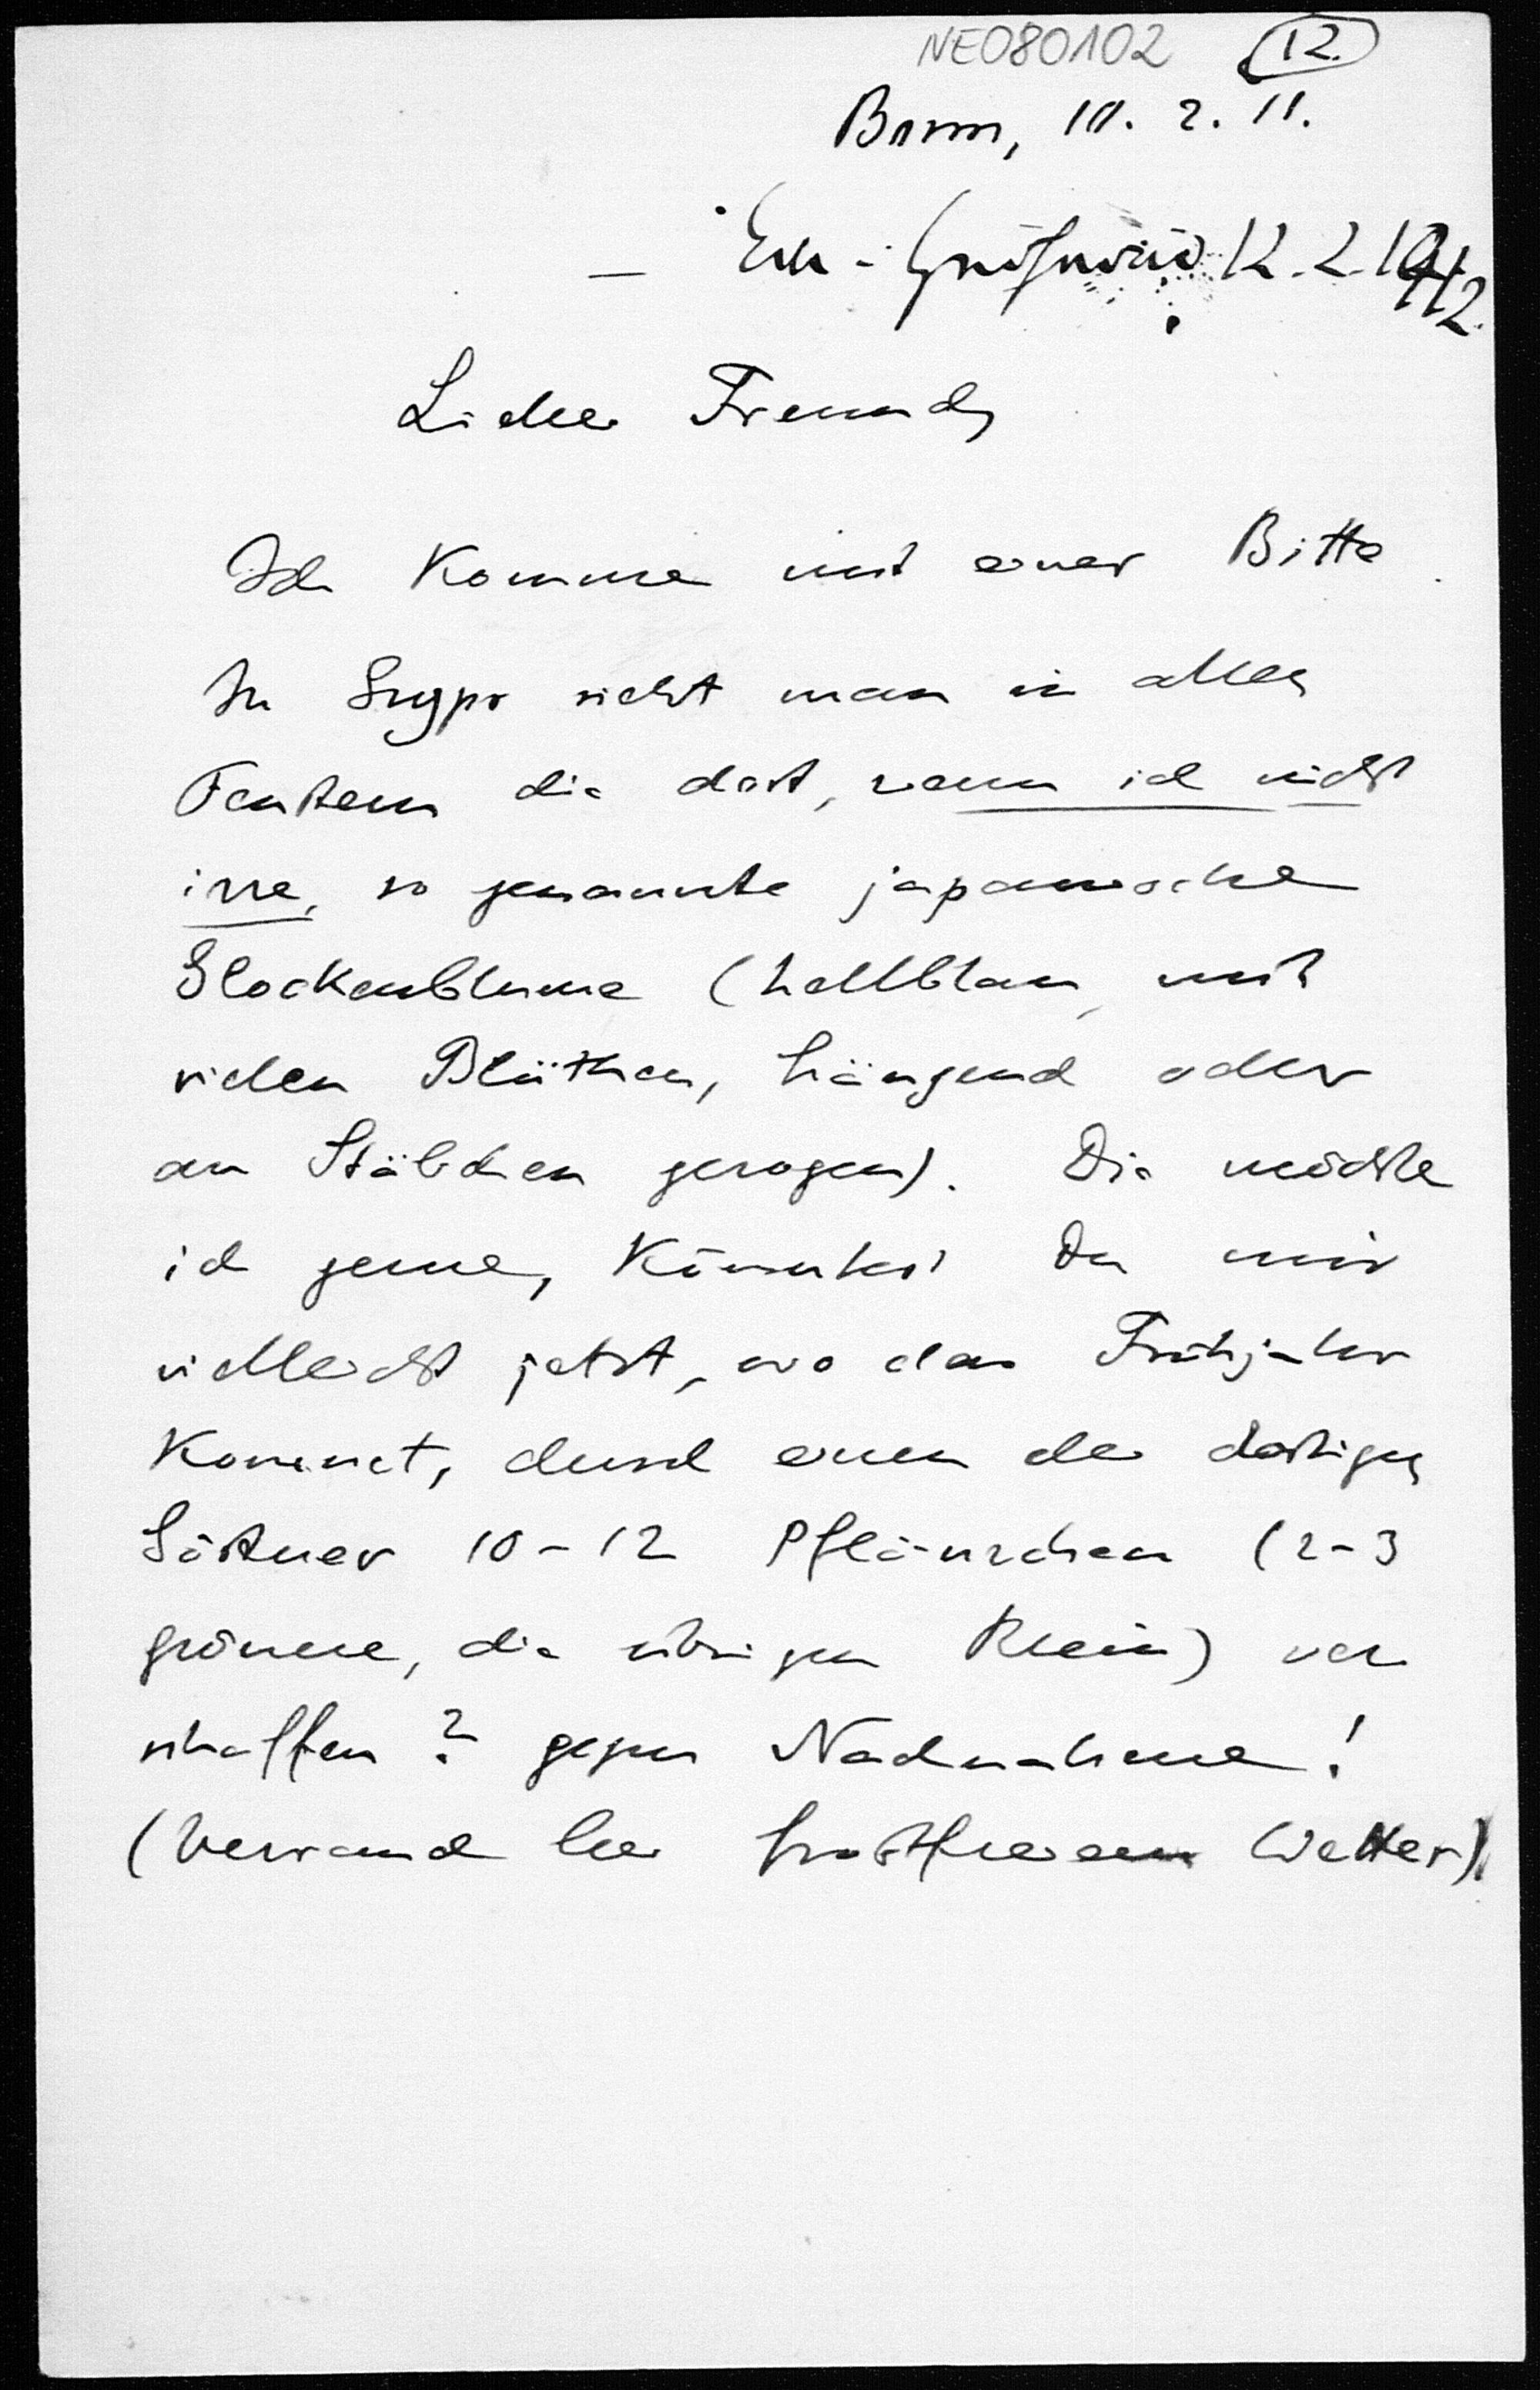 NE080102 12.
Bonn, 10. 2. 11.
12. 2. 1912.
Lieber Freund,
Ich komme mit einer Bitte.
In Gryps sieht man in allen
Fenstern die dort, wenn ich nicht
irre, so genannte japanische
Glockenblume (hellblau, mit
vielen Blüthen, hängend oder
an Stäbchen gezogen). Die möchte
ich gerne, könntest Du mir
vielleicht jetzt, wo das Frühjahr
kommt, durch einen der dortigen
Gärtner 10-12 Pflänzchen (2-3
grössere, die übrigen klein) ver
schaffen? gegen Nachnahme!
(Versand bei frostfreiem Wetter)